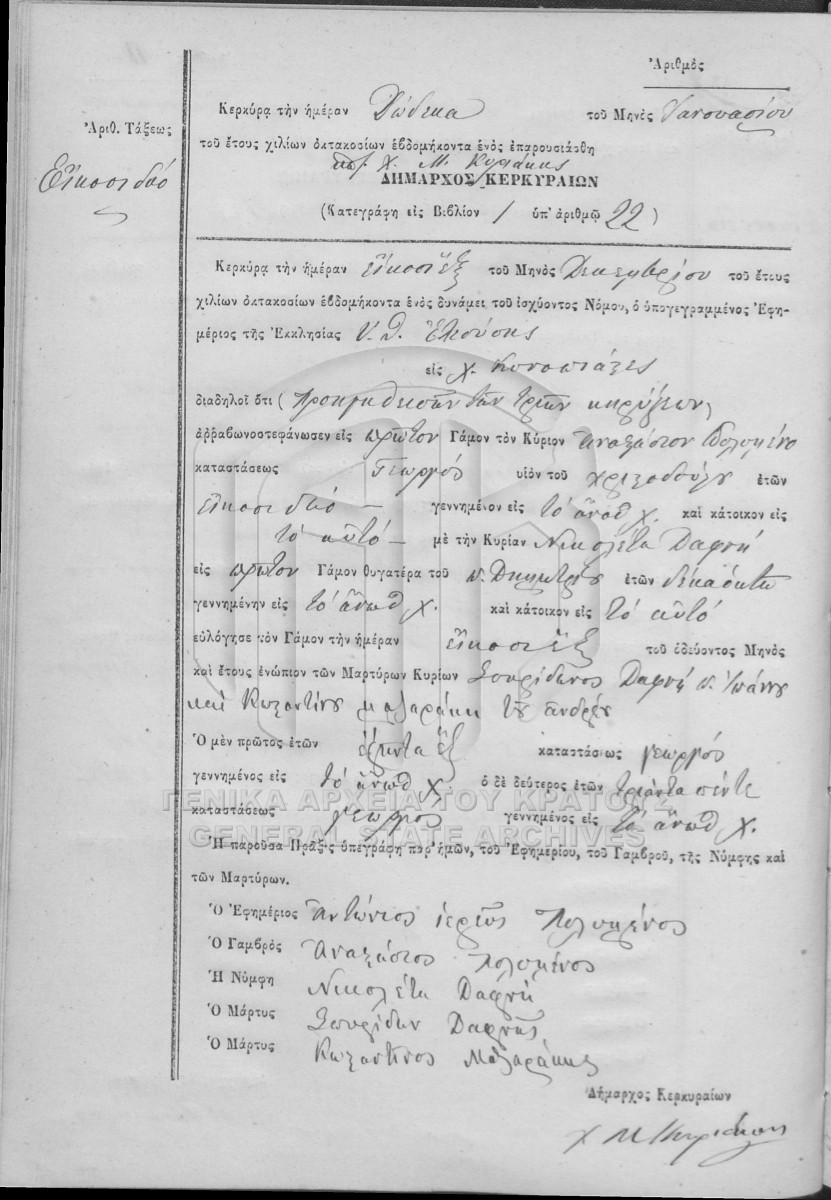 Ἀριθμὸς
Ἀριθ. Τάξεως
Εἴκοσι δυό
Κερκύρᾳ τὴν ἡμέραν Δώδεκα τοῦ Μηνὸς Ἰανουαρίου
τοῦ ἔτους χιλίων ὀκτακοσίων ἑβδομήκοντα ἑνὸς ἐπαρουσιάσθη
Χ. Μ. Κυριάκης
ΔΗΜΑΡΧΟΣ ΚΕΡΚΥΡΑΙΩΝ
(Κατεγράφη εἰς Βιβλίον 1 ὑπ' ἀριθμῷ 22)
Κερκύρᾳ τὴν ἡμέραν εἴκοσι ἕξ τοῦ Μηνὸς Δεκεμβρίου τοῦ ἔτους
χιλίων ὀκτακοσίων ἑβδομήκοντα ἑνὸς δυνάμει τοῦ ἰσχύοντος Νόμου, ὁ ὑπογεγραμμένος Ἐφη-
μέριος τῆς Ἐκκλησίας Υ. Θ. Ἐλεούσης
εἰς χ. Κυνοπιάστες
διαδηλοῖ ὅτι (προηγηθεισῶν τῶν τριῶν κηρύξεων)
ἀρραβωνοστεφάνωσεν εἰς πρῶτον Γάμον τὸν Κύριον Ἀναστάσιον Πολυμένο
καταστάσεως Γεωργός υἱὸν τοῦ Χριστοδούλου ἐτῶν
εἴκοσι δυό – γεννημένον εἰς τὸ ἄνωθ χ. καὶ κάτοικον εἰς
τὸ αὐτό – μὲ τὴν Κυρίαν Νικολέτα Δαφνή
εἰς πρῶτον Γάμον θυγατέρα τοῦ π. Δημητρίου ἐτῶν δέκα ὀκτώ
γεννημένην εἰς τὸ ἄνωθ χ. καὶ κάτοικον εἰς τὸ αὐτό
εὐλόγησε τὸν Γάμον τὴν ἡμέραν εἴκοσι ἕξ τοῦ ὁδεύοντος Μηνὸς
καὶ ἔτους ἐνώπιον τῶν Μαρτύρων Κυρίων Σπυρίδωνος Δαφνή π. Ἰωάννου
καὶ Κωσταντίνου Μαζαράκη τοῦ Ἀνδρέου
Ὁ μὲν πρῶτος ἐτῶν ἑξῆντα ἕξ καταστάσεως γεωργός
γεννημένος εἰς τὸ ἄνωθ χ. ὁ δὲ δεύτερος ἐτῶν τριάντα πέντε
καταστάσεως γεωργός γεννημένος εἰς τὸ ἄνωθ χ.
Ἡ παροῦσα Πρᾶξις ὑπεγράφη παρ' ἡμῶν, τοῦ Ἐφημερίου, τοῦ Γαμβροῦ, τῆς Νύμφης καὶ
τῶν Μαρτύρων.
Ὁ Ἐφημέριος Ἀντώνιος ἱερεὺς Πολυμένος
Ὁ Γαμβρὸς Ἀναστάσιος Πολυμένος
Ἡ Νύμφη Νικολέτα Δαφνή
Ὁ Μάρτυς Σπυρίδων Δαφνῆς
Ὁ Μάρτυς Κωσταντίνος Μαζαράκης
Δήμαρχος Κερκυραίων
Χ Μ Κυριάκης
ΓΕΝΙΚΑ ΑΡΧΕΙΑ ΤΟΥ ΚΡΑΤΟΥΣ
GENERAL STATE ARCHIVES